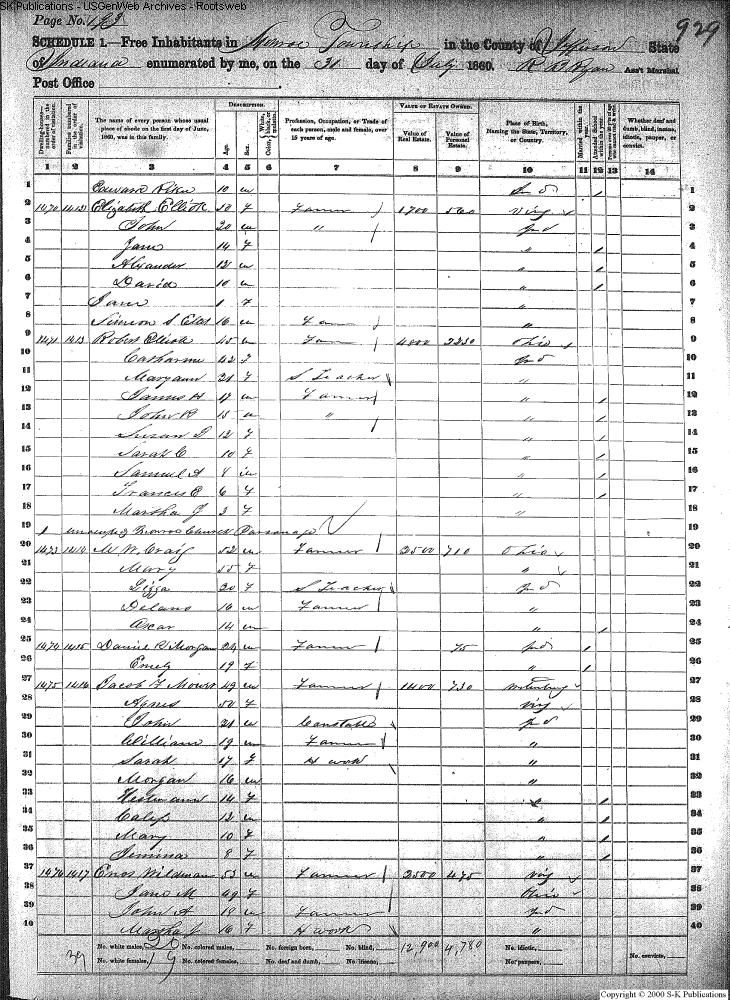 SKPublications - USGenWeb Archives - Rootsweb
Page No. 193
929
SCHEDULE 1.—Free Inhabitants in Monroe Township in the County of Jefferson State
of Indiana enumerated by me, on the 31 day of July 1860. R B Ryan Ass't Marshal
Post Office
Dwelling-houses numbered in the order of visitation.
Families numbered in the order of visitation.
The name of every person whose usual place of abode on the first day of June, 1860, was in this family.
DESCRIPTION.
Age.
Sex.
Color,
Profession, Occupation, or Trade of each person, male and female, over 15 years of age.
VALUE OF ESTATE OWNED.
Value of Real Estate.
Value of Personal Estate.
Place of Birth, Naming the State, Territory, or Country.
Married within the year.
Whether deaf and dumb, blind, insane, idiotic, pauper, or convict.
1 2 3 4 5 6 7 8 9 10 11 12 13 14
1 Edward 10 m Ind / 1
2 1470 1412 Elizabeth Elliott 50 f Farmer 1700 560 Virg 2
3 John 20 m " Ind 3
4 Jane 14 f " / 4
5 Alexander 12 m " / 5
6 David 10 m " / 6
7 Jane 1 f 7
8 Simeon S 16 m " 8
9 1471 1413 Robert Elliott 45 m Farmer 4800 2230 Ohio 9
10 Catharine 42 f Ind 10
11 Maryann 21 f S Teacher " 11
12 James H 17 m Farmer " / 12
13 John B 15 m " " / 13
14 Susan D 12 f " / 14
15 Sarah C 10 f " / 15
16 Samuel A 8 m " / 16
17 Francis E 6 f " / 17
18 Martha J 3 f " 18
19 1 unoccupied Monroe Church Parsonage 19
20 1473 1414 M W Craig 52 m Farmer 2500 710 Ohio 20
21 Mary 55 f " 21
22 Lizza 20 f S Teacher Ind 22
23 Delano 16 m Farmer " 23
24 Oscar 14 m " / 24
25 1474 1415 Daniel Morgan 24 m Farmer 75 Ind / 25
26 Emely 19 f " / 26
27 1475 1416 Jacob F 49 m Farmer 1400 730 27
28 Agnes 50 f Virg 28
29 John 21 m Constable Ind 29
30 William 19 m Farmer " 30
31 Sarah 17 f H work " 31
32 Morgan 16 m " 32
33 14 f " / 33
34 Caleb 12 m " / 34
35 Mary 10 f " / 35
36 Jemima 8 f " / 36
37 1476 1417 Enos Wildman 53 m Farmer 2500 475 Virg 37
38 Jane M 49 f Ohio 38
39 John A 18 m Farmer Ind 39
40 Martha J 16 f H work " 40
No. white males, 20 No. colored males, No. foreign born, No. blind, 12,900 4,780 No. idiotic,
39 No. white females, 19 No. colored females, No. deaf and dumb, No. insane, No. paupers, No. convicts,
Copyright © 2000 S-K Publications